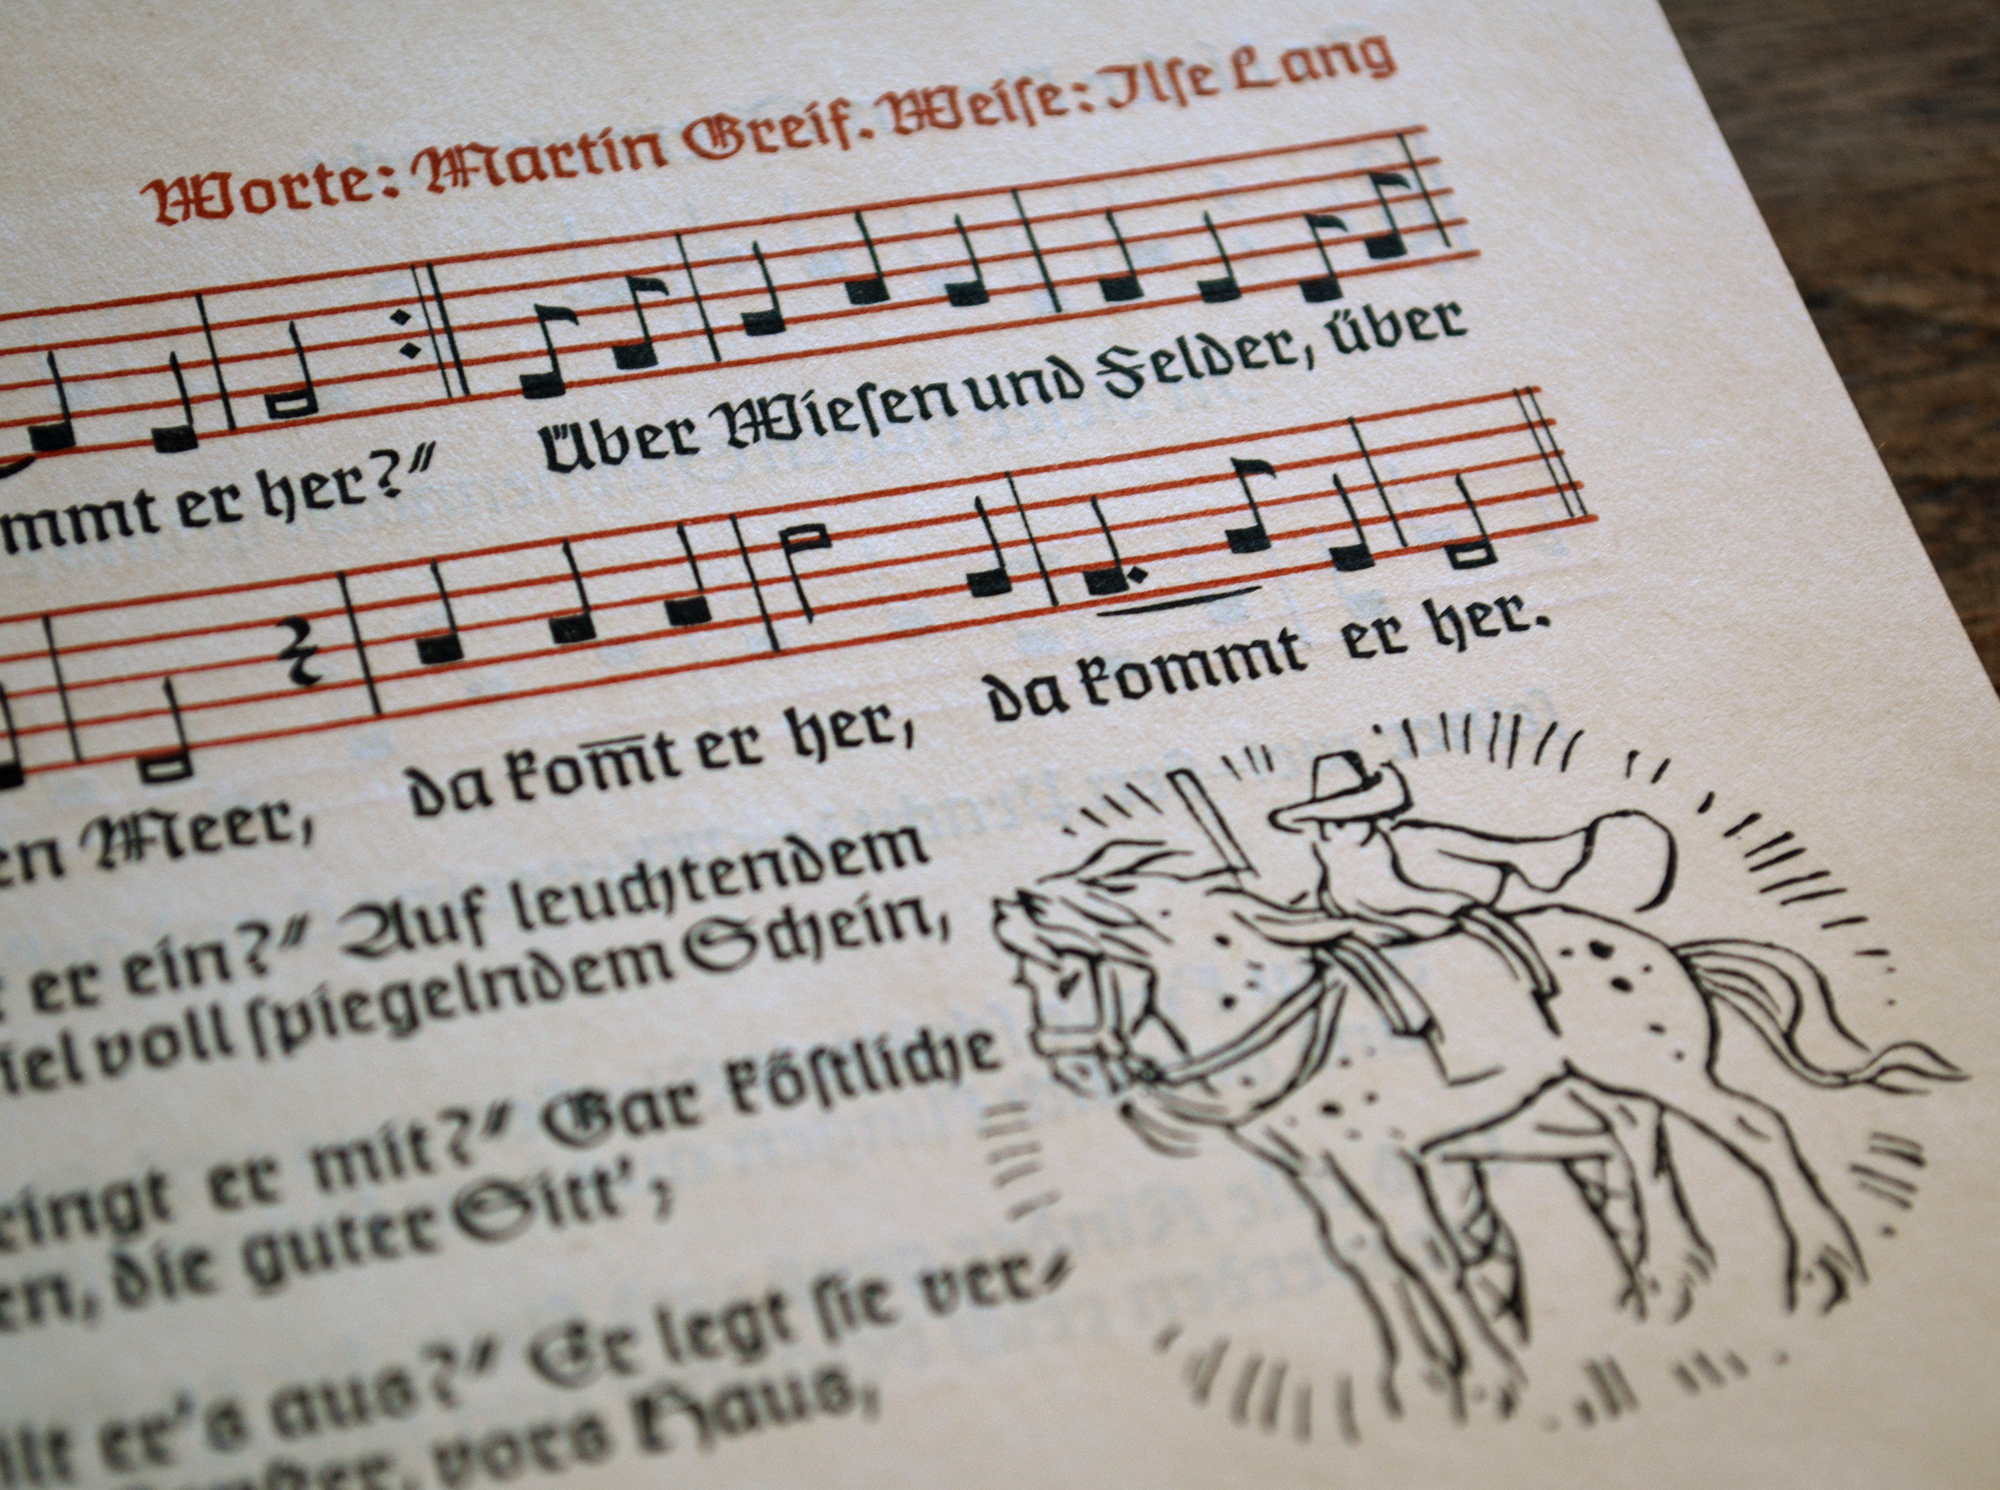 Worte: Martin Greif. Weise: Ilse Lang
mmt er her?" Über Wiesen und Felder, über
en Meer, da kom̅t er her, da kommt er her.
er ein?" Auf leuchtendem
iel voll spiegelndem Schein,
ringt er mit?" Gar köstliche
en, die guter Sitt',
ilt er's aus?" Er legt sie ver⸗
vors Haus,